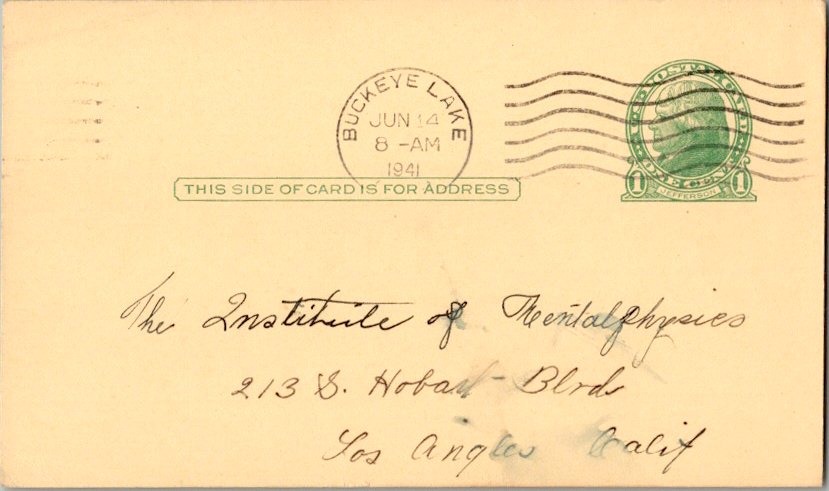 BUCKEYE LAKE
JUN 14
8 -AM
1941
U.S. POSTAL CARD
ONE CENT
1 JEFFERSON 1
THIS SIDE OF CARD IS FOR ADDRESS
The Institute of Mentalphysics
213 S. Hobart Blvd
Los Angles Calif